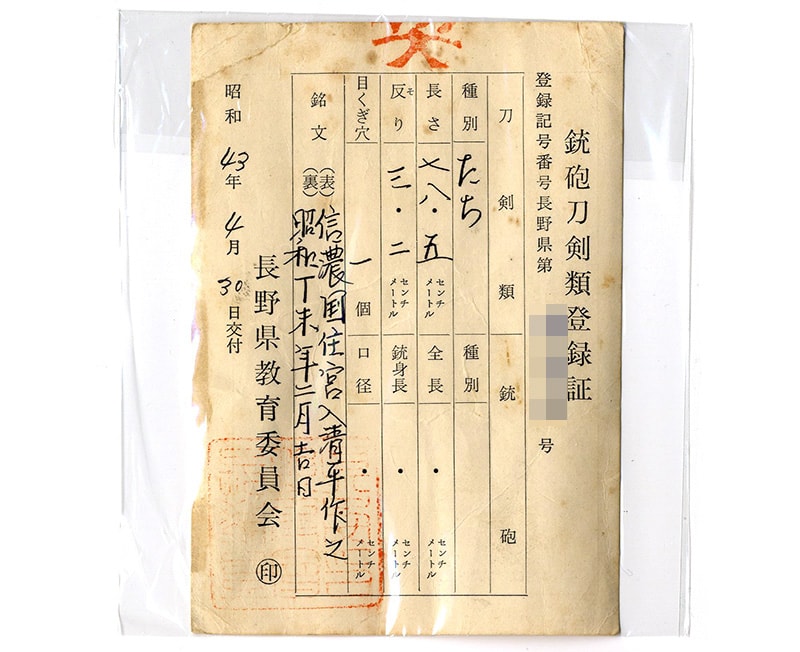 銃砲刀剣類登録証
登録記号番号長野県第
号
刀剣類
銃砲
種別
たち
種別
長さ
七八・五
センチメートル
全長
・
センチメートル
反り
そ
三・二
センチメートル
銃身長
・
センチメートル
目くぎ穴
一個
口径
・
センチメートル
銘文
(表)
信濃国住宮入清平作之
(裏)
昭和丁未年二月吉日
長野県教育委員会
印
昭和43年4月30日交付